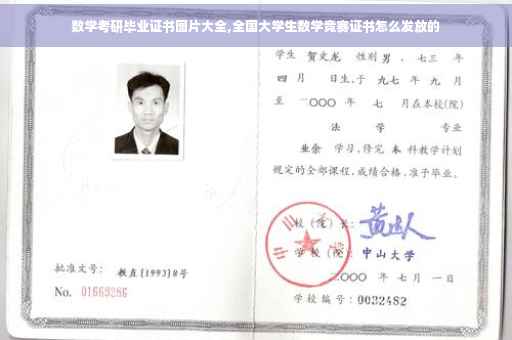 数学考研毕业证书图片大全,全国大学生数学竞赛证书怎么发放的
学生 贺文龙 性别 男 、七三 年
四 月 日生,于 九七 年 九 月
至 二〇〇〇 年 七 月在本校(院)
法 学 专业
业余 学习,修完 本 科教学计划
规定的全部课程,成绩合格,准予毕业。
校(院)长:
学校(院): 中山大学
二〇〇〇 年 七 月 一 日
学校编号: 0032482
批准文号: 教直[1993]8号
No. 01669286
中山大学